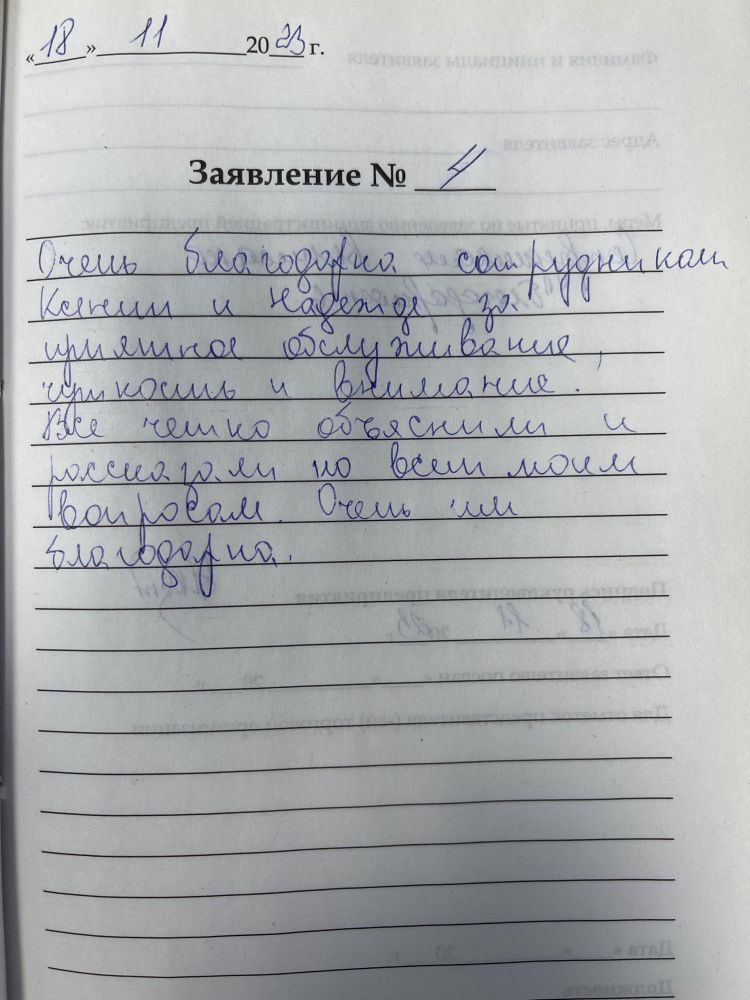 «18» 11 2023 г.
Заявление № 4
Очень благодарна сотрудникам
Ксении и Надежде за
приятное обслуживание,
чуткость и внимание.
Все четко объяснили и
рассказали по всем моим
вопросам. Очень им
благодарна.